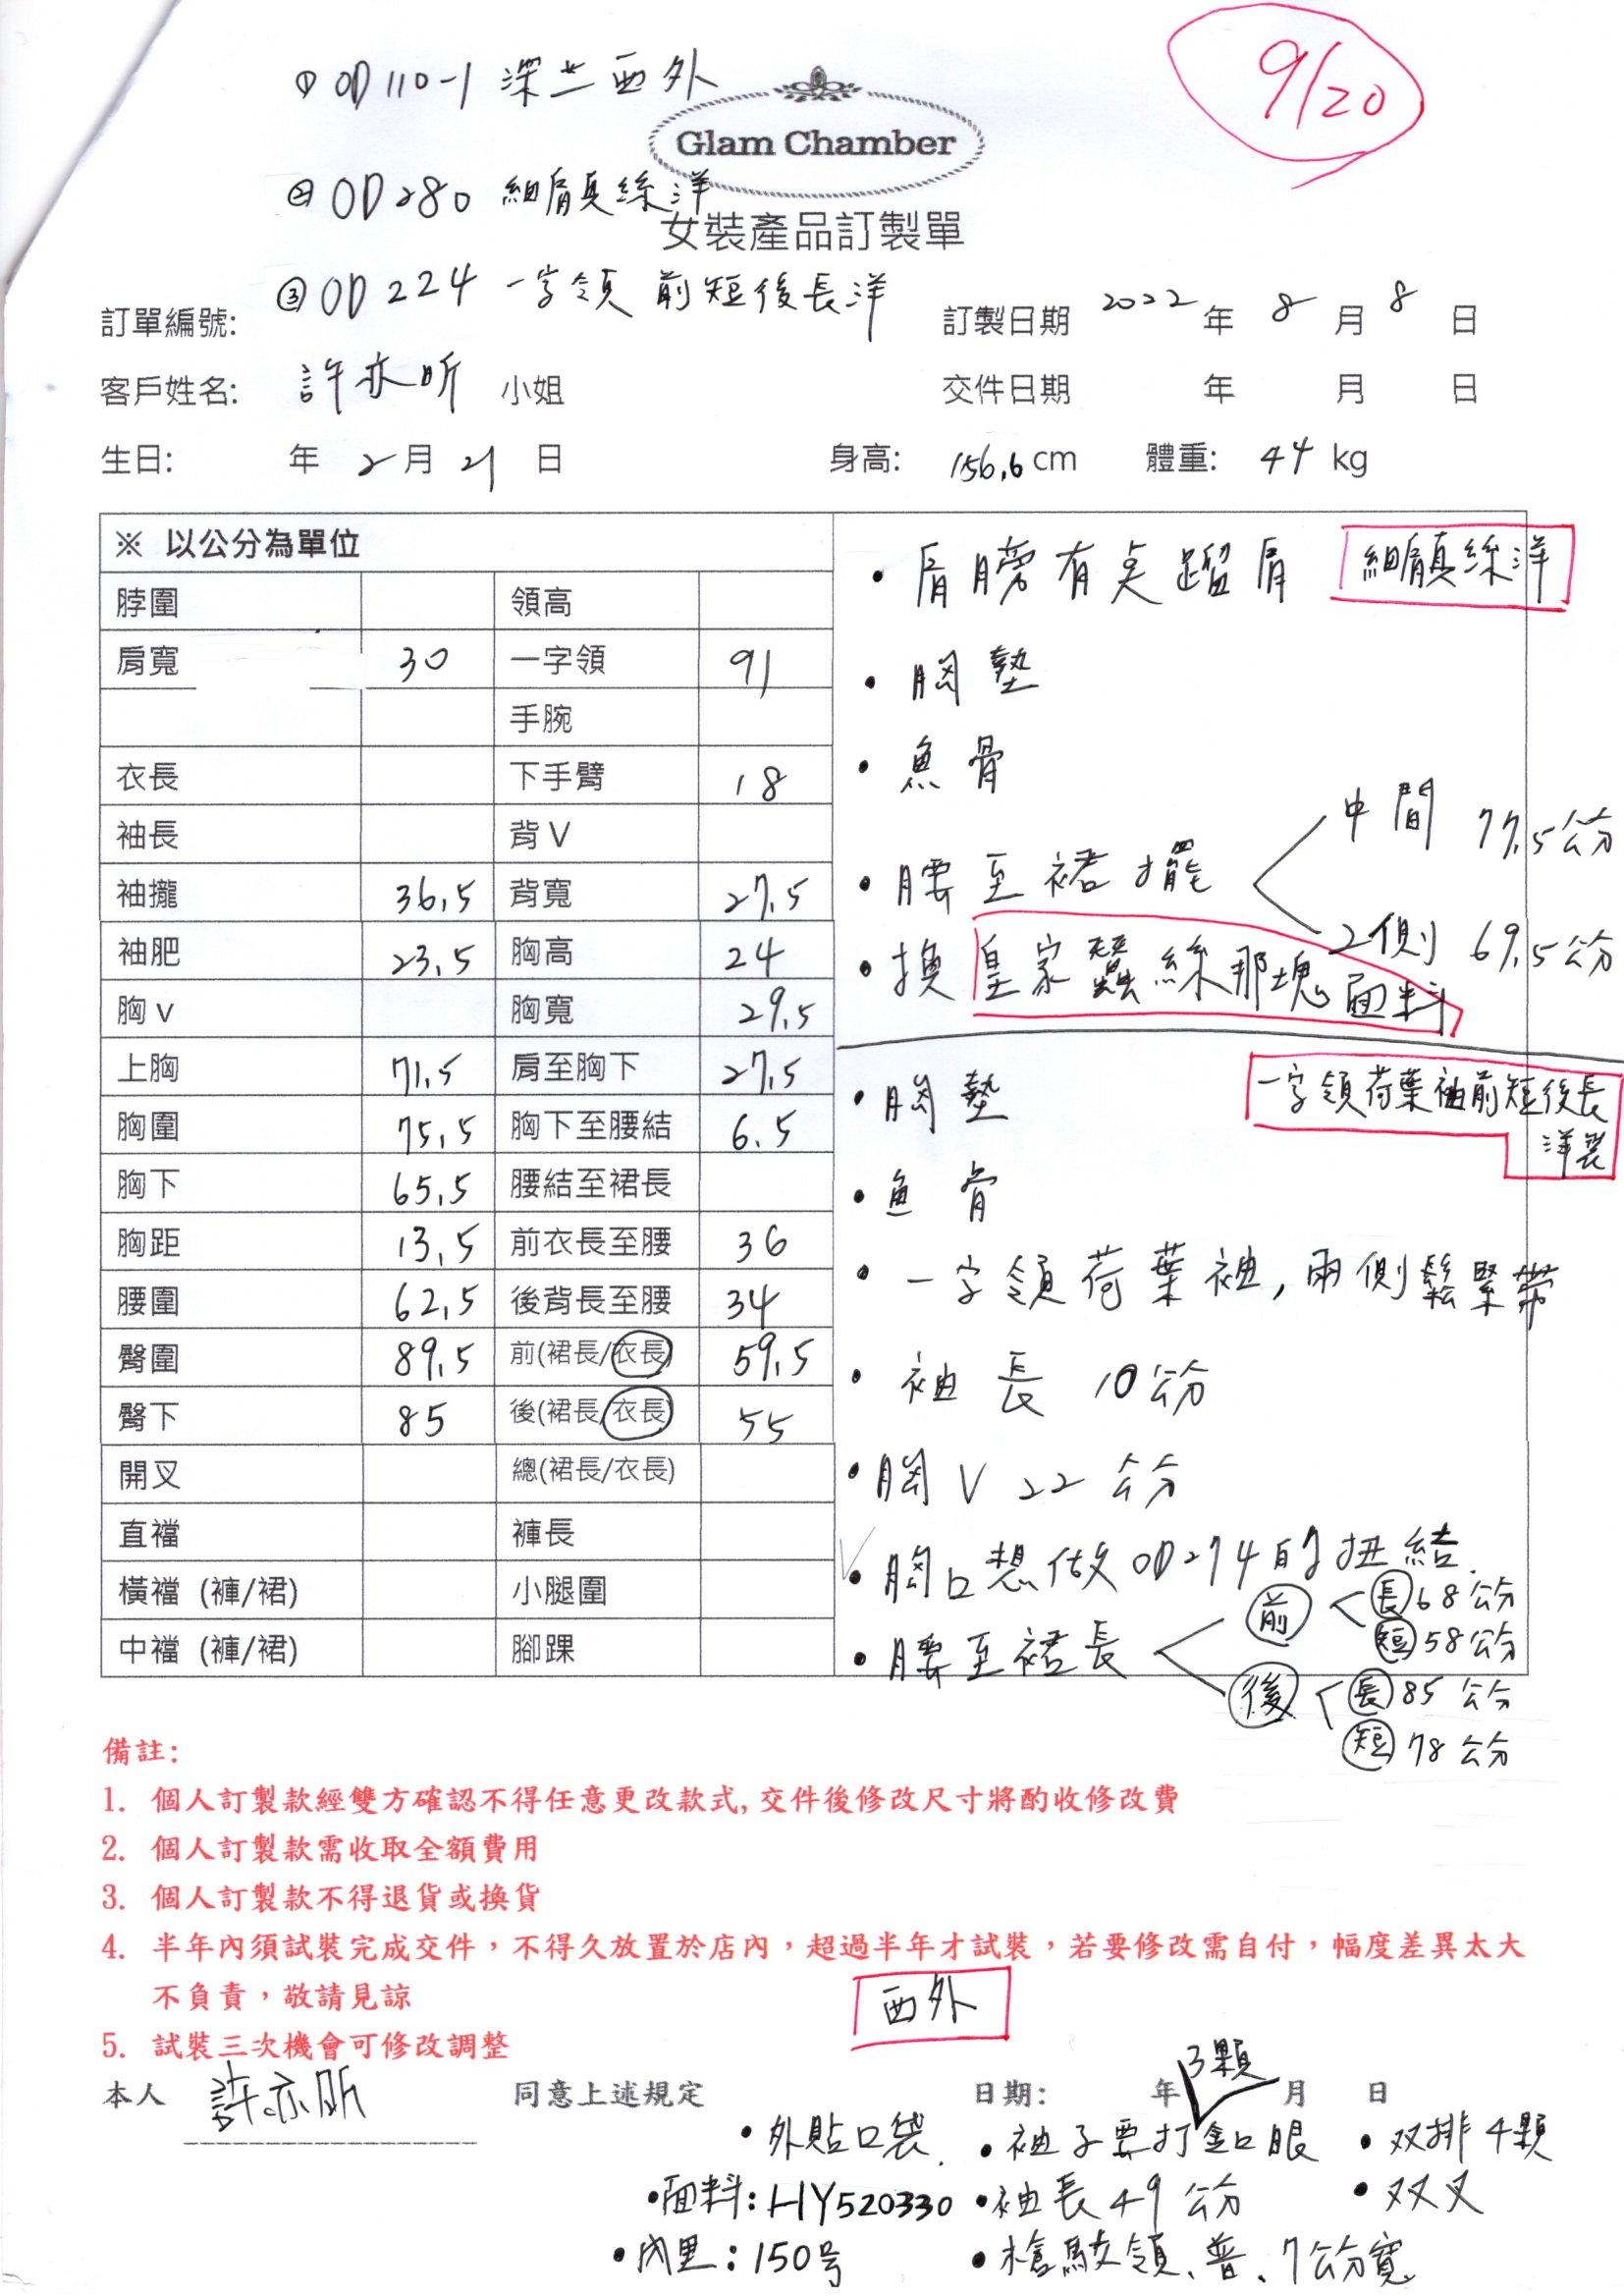 ①OD110-1 深兰西外
9/20
Glam Chamber
②OD280 細肩真絲洋
女裝產品訂製單
③OD224 一字領 前短後長洋
訂單編號: 訂製日期 2022 年 8 月 8 日
客戶姓名: 許亦昕 小姐 交件日期 年 月 日
生日: 年 2 月 21 日 身高: 156.6 cm 體重: 44 kg
※ 以公分為單位
脖圍 領高
肩寬 30 一字領 91
手腕
衣長 下手臂 18
袖長 背V
袖攏 36.5 背寬 27.5
袖肥 23.5 胸高 24
胸v 胸寬 29.5
上胸 71.5 肩至胸下 27.5
胸圍 75.5 胸下至腰結 6.5
胸下 65.5 腰結至裙長
胸距 13.5 前衣長至腰 36
腰圍 62.5 後背長至腰 34
臀圍 89.5 前(裙長/衣長) 59.5
臀下 85 後(裙長/衣長) 55
開叉 總(裙長/衣長)
直襠 褲長
橫襠 (褲/裙) 小腿圍
中襠 (褲/裙) 腳踝
• 肩膀有点蹓肩 細肩真絲洋
• 胸墊
• 魚骨
• 腰至裙擺 中間 77.5公分
2側 69.5公分
• 換皇家蠶絲那塊面料
一字領荷葉袖前短後長
洋裝
• 胸墊
• 魚骨
• 一字領荷葉袖,兩側鬆緊帶
• 袖長 10公分
• 胸V 22公分
• 胸口想做OD274的扭結.
• 腰至裙長 前 長68公分
短58公分
後 長85公分
短78公分
備註:
1. 個人訂製款經雙方確認不得任意更改款式,交件後修改尺寸將酌收修改費
2. 個人訂製款需收取全額費用
3. 個人訂製款不得退貨或換貨
4. 半年內須試裝完成交件，不得久放置於店內，超過半年才試裝，若要修改需自付，幅度差異太大
不負責，敬請見諒
5. 試裝三次機會可修改調整
西外
本人 許亦昕 同意上述規定 日期: 年 月 日
3顆
• 外貼口袋. • 袖子要打釦眼 • 双排4顆
• 面料:HY520330 • 袖長49公分 • 双叉
• 內里:150号 • 槍駁領、普、7公分寬